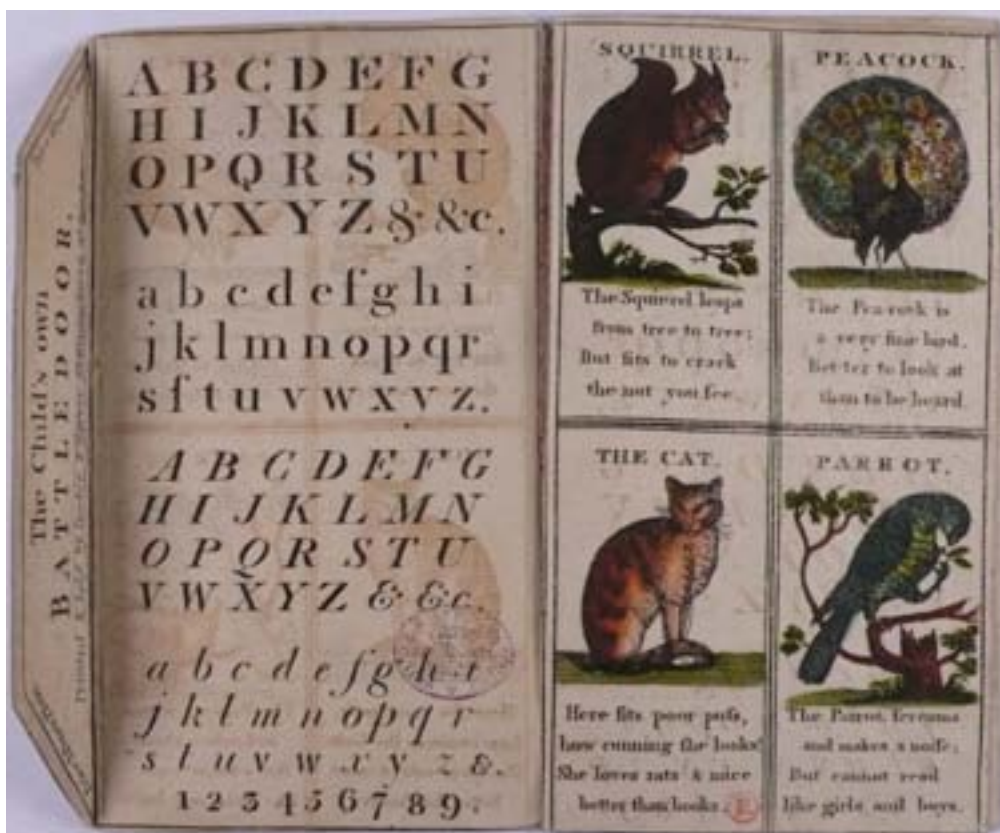 The Child's own
BATTLEDOOR.
A B C D E F G
H I J K L M N
O P Q R S T U
V W X Y Z & &c.
a b c d e f g h i
j k l m n o p q r
s ſ t u v w x y z.
A B C D E F G
H I J K L M N
O P Q R S T U
V W X Y Z & &c.
a b c d e f g h i
j k l m n o p q r
s t u v w x y z &.
1 2 3 4 5 6 7 8 9
SQUIRREL.
The Squirrel leaps
from tree to tree;
But ſits to crack
the nut you ſee.
PEACOCK.
The Peacock is
a very fine bird.
Better to look at
than to be heard.
THE CAT.
Here ſits poor puſs,
how cunning ſhe looks!
She loves rats & mice
better than books.
PARROT.
The Parrot ſcreams
and makes a noiſe;
But cannot read
like girls and boys.